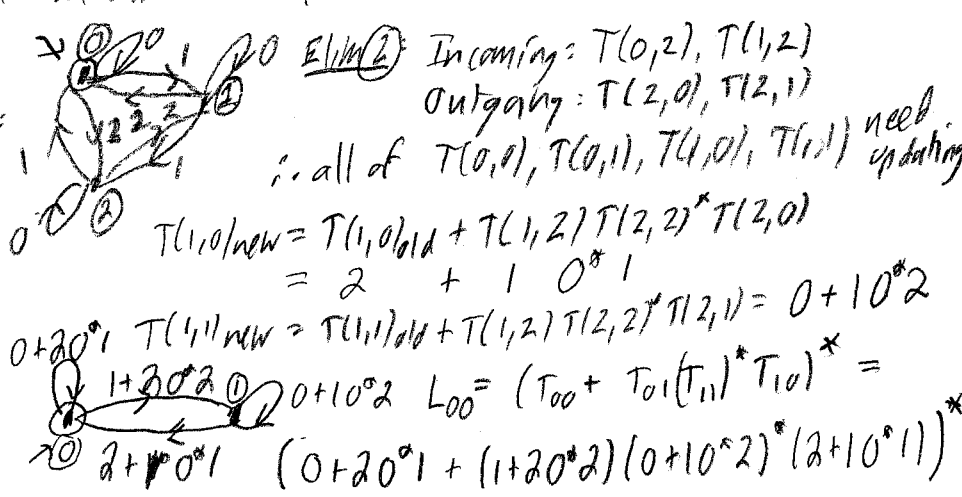 0 0 1 0 Elim ②: Incoming: T(0,2), T(1,2)
① Outgoing: T(2,0), T(2,1)
2 2 2 1 1
∴ all of T(0,0), T(0,1), T(1,0), T(1,1) need updating
0 ② T(1,0)new = T(1,0)old + T(1,2) T(2,2)* T(2,0)
= 2 + 1 0* 1
0+20*1 T(1,1)new = T(1,1)old + T(1,2) T(2,2)* T(2,1) = 0+10*2
1+20*2 ① 0+10*2 L00 = (T00 + T01(T11)* T10)* =
0 2+10*1 (0+20*1 + (1+20*2)(0+10*2)*(2+10*1))*